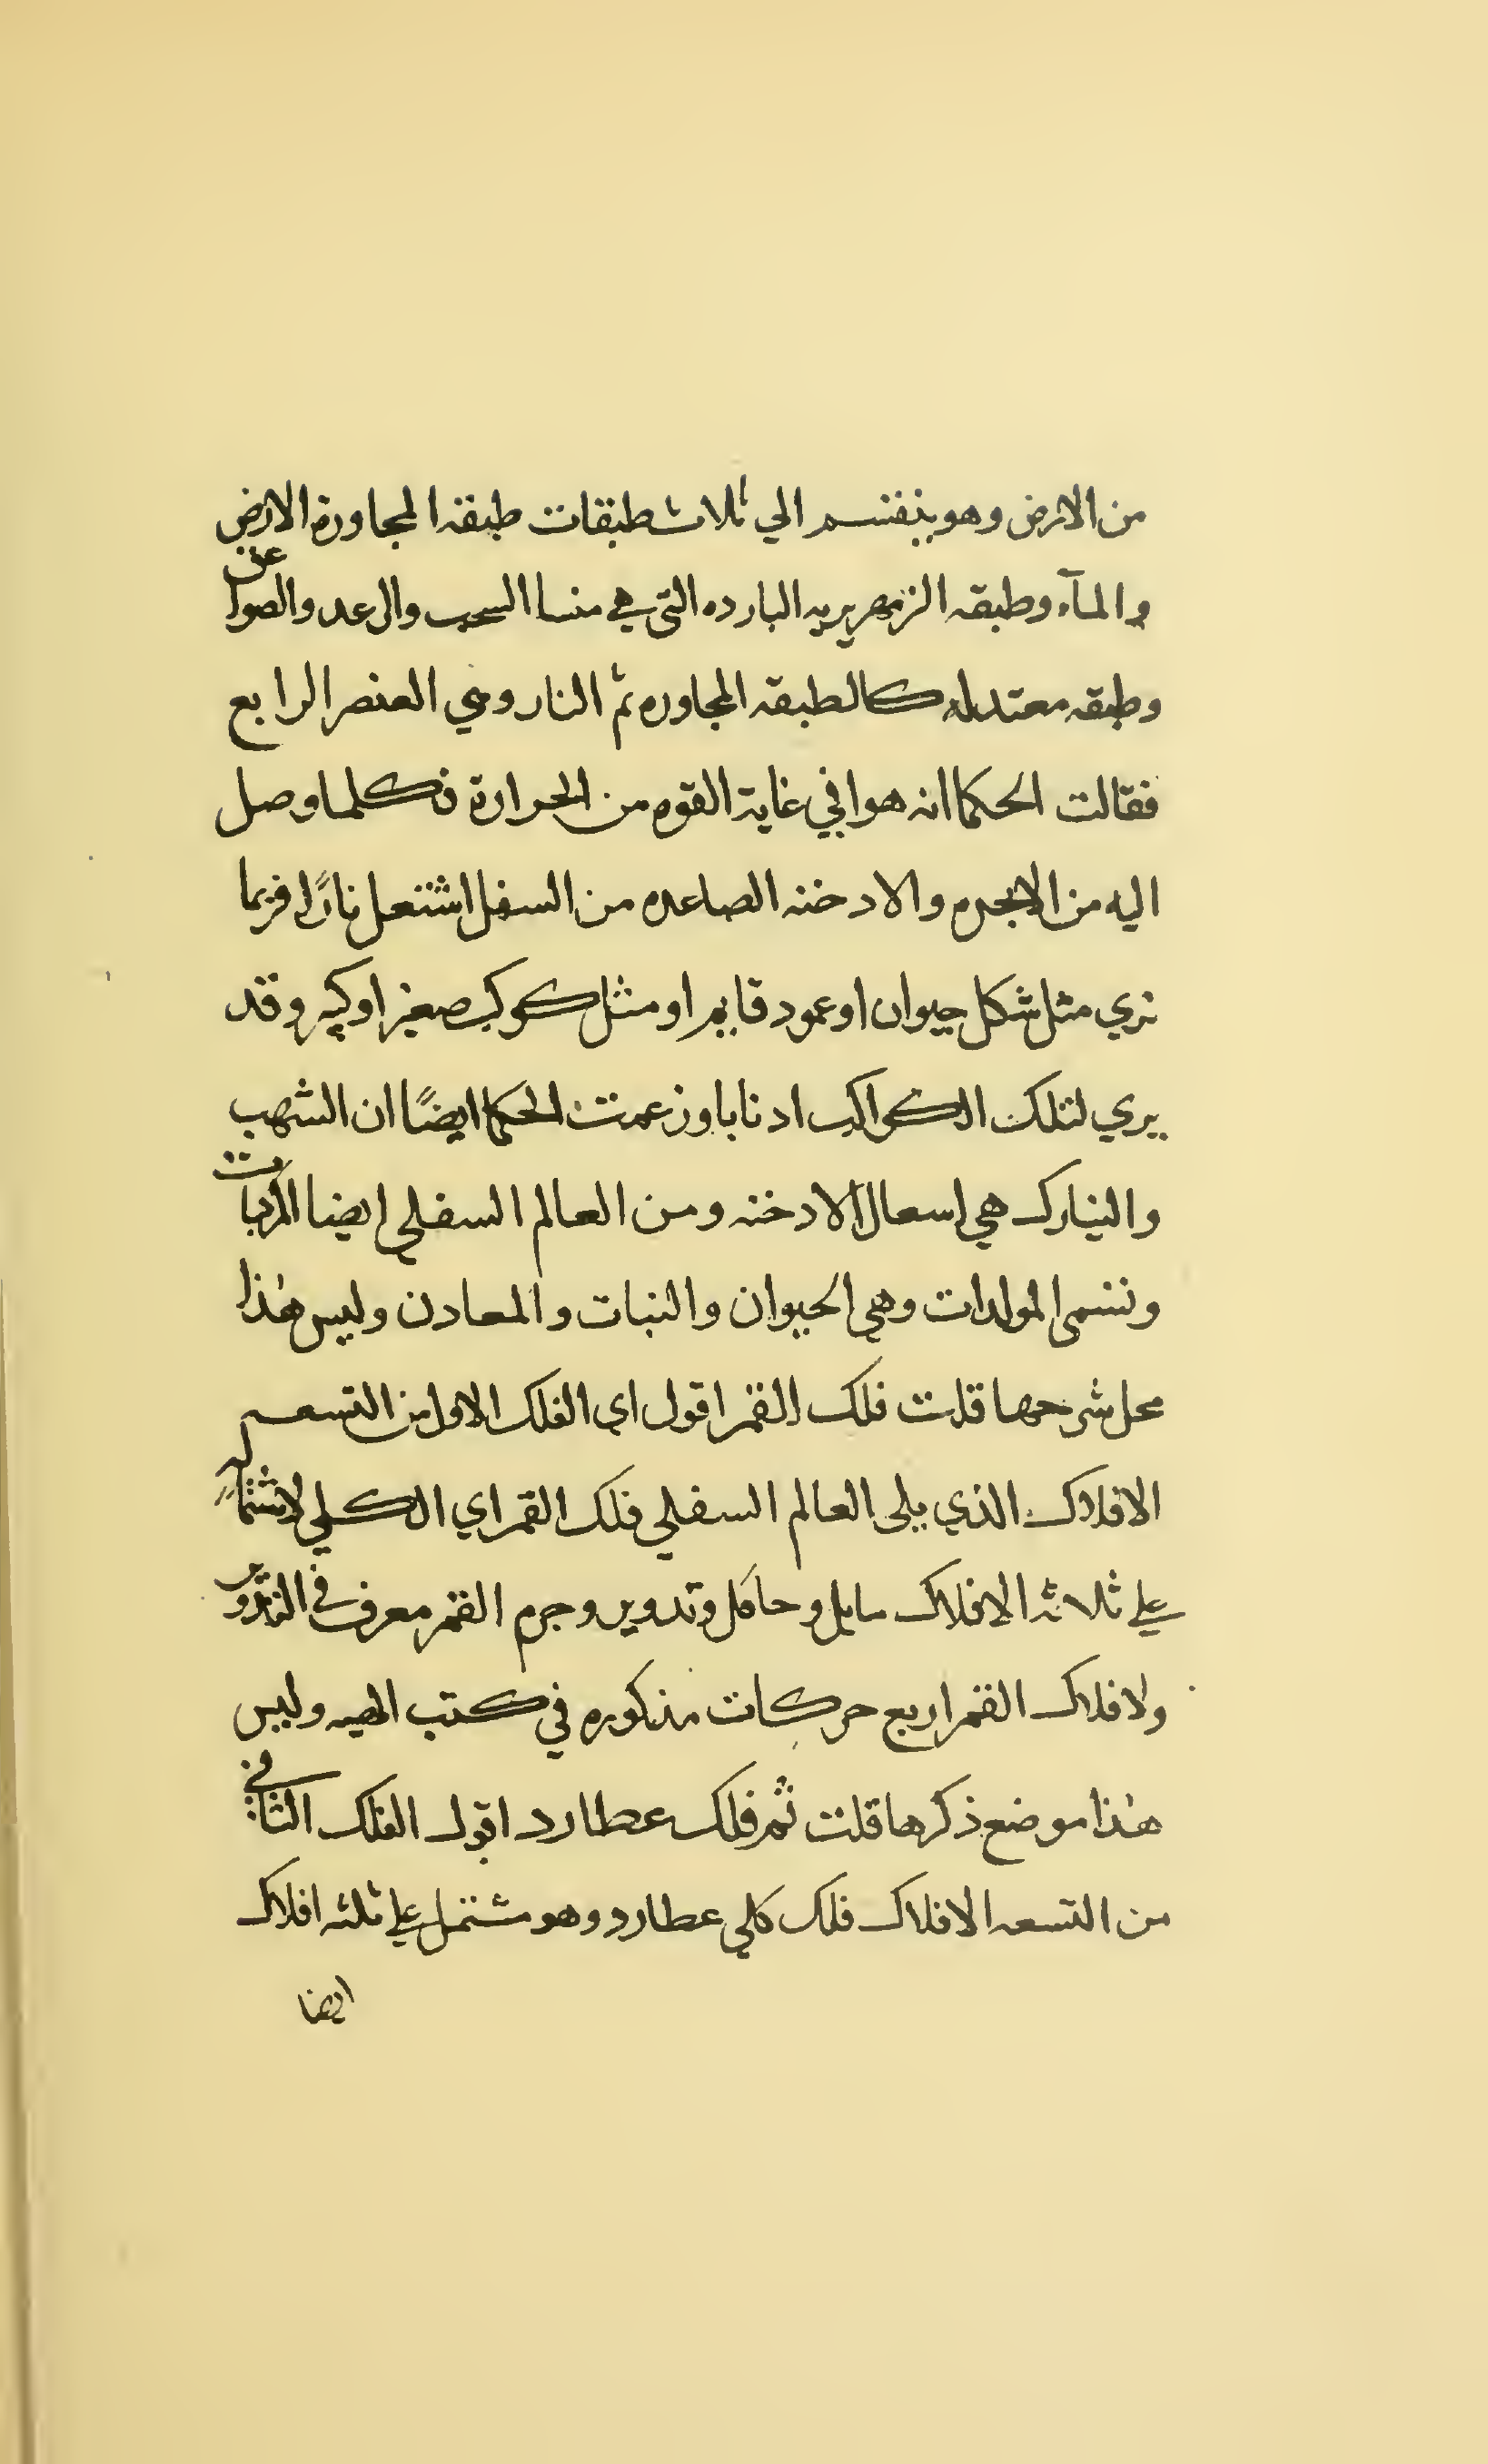 من الارض وهو ينقسم الي ثلاث طبقات طبقه المجاورة الارض
والمآء وطبقه الزمهريريه البارده التي هي منسا السحب والرعد والصواعق
وطبقه معتدله كالطبقه المجاوره ثم النار وهي العنصر الرابع
فقالت الحكما انه هوا في غاية القوه من الحرارة فكلما وصل
اليه من الابخره والادخنه الصاعده من السفل اشتعل نارًا فربما
تري مثل شكل حيوان او عمود قايم او مثل كوكب صغير او كبير وقد
يري لتلك الكواكب ادنابا وزعمت الحكما ايضًا ان الشهب
والنيازك هي اسعال الادخنه ومن العالم السفلي ايضا المركبات
وتسمى المولدات وهي الحيوان والنبات والمعادن وليس هذا
محل شرحها قلت فلك القمر اقول اي الفلك الاول من التسعه
الافلاك الذي يلى العالم السفلي فلك القمر اي الكلي لاشتماله
علي ثلاثه الافلاك مايل وحامل وتدوير وجرم القمر معرق في التدوير
ولافلاك القمر اربع حركات مذكوره في كتب الهيه وليس
هذا موضع ذكرها قلت ثم فلك عطارد اقول الفلك الثاني
من التسعه الافلاك فلك كلي عطارد وهو مشتمل علي ثلثه افلاك
ايضا